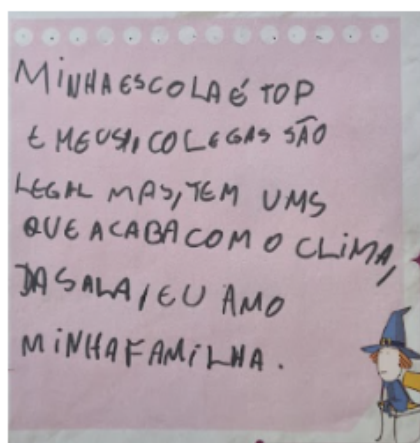 MINHAESCOLA É TOP
E MEUSI, COLEGAS SÃO
LEGAL MAS, TEM UMS
QUE ACABA COM O CLIMA,
DASALA, EU AMO
MINHAFAMILHA.